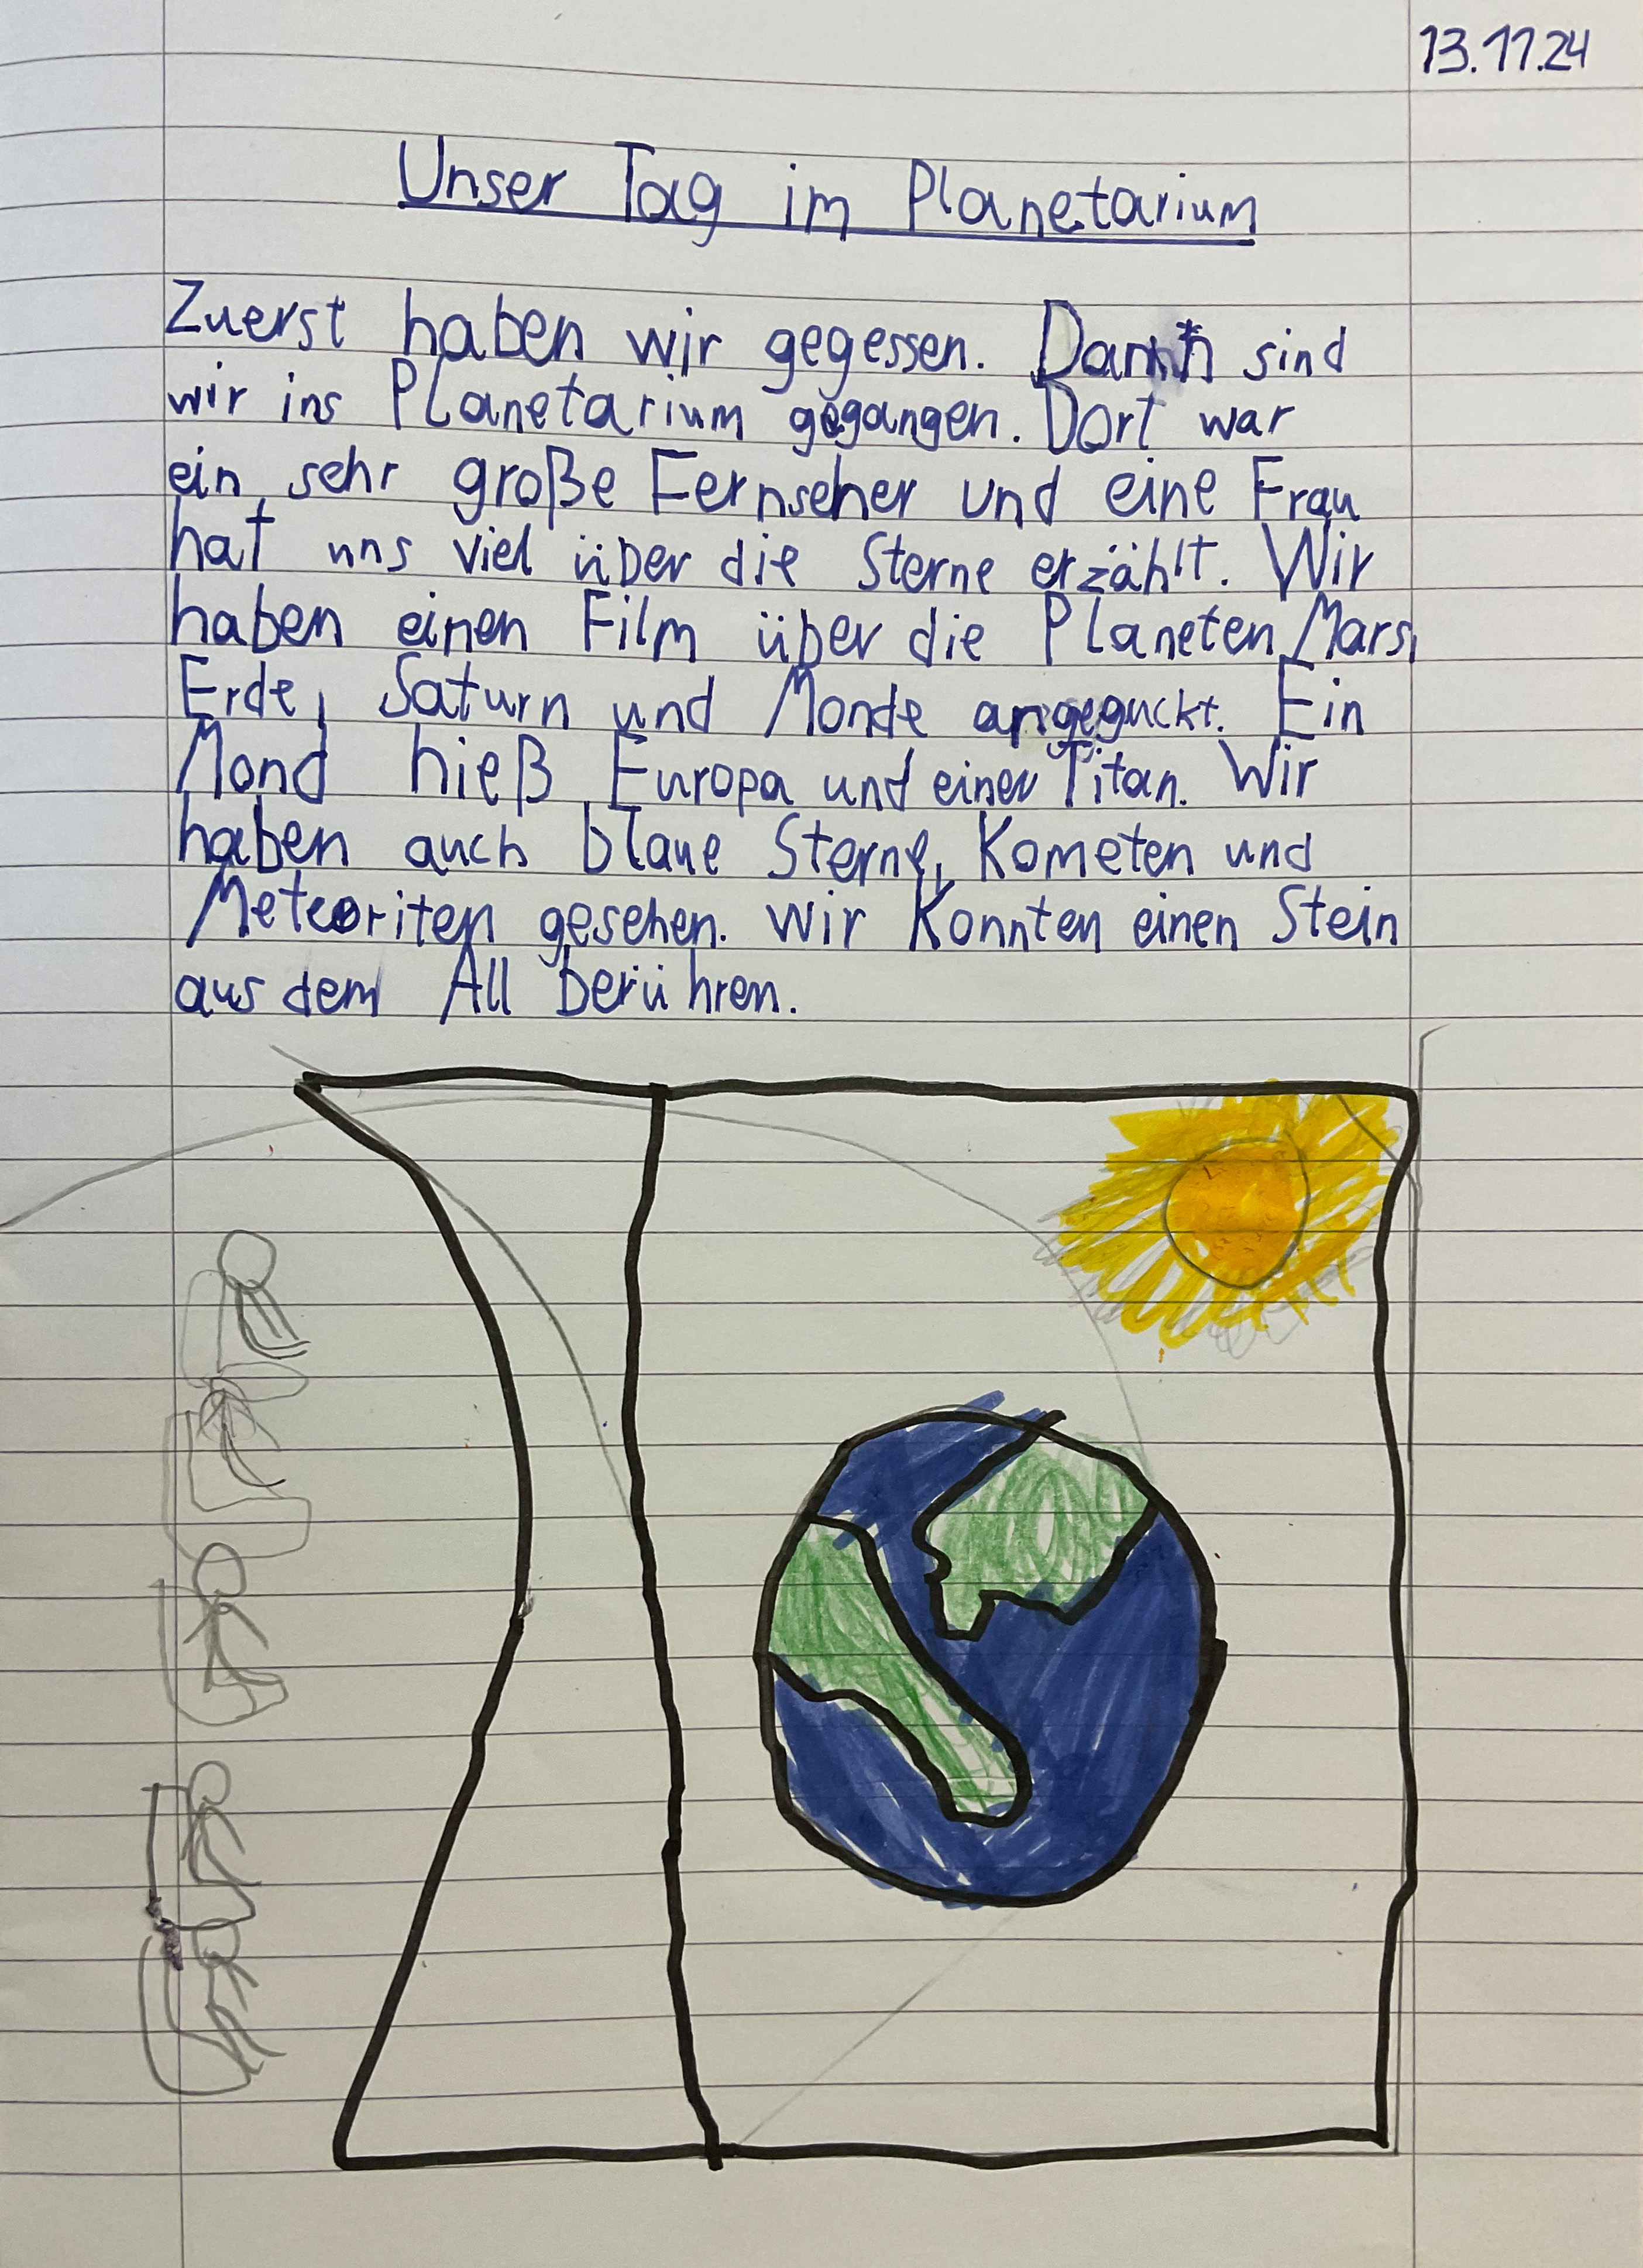 13.11.24
Unser Tag im Planetarium
Zuerst haben wir gegessen. Dann sind
wir ins Planetarium gegangen. Dort war
ein sehr große Fernseher und eine Frau
hat uns viel über die Sterne erzählt. Wir
haben einen Film über die Planeten Mars,
Erde, Saturn und Monde angeguckt. Ein
Mond hieß Europa und einer Titan. Wir
haben auch blaue Sterne, Kometen und
Meteoriten gesehen. Wir konnten einen Stein
aus dem All berühren.